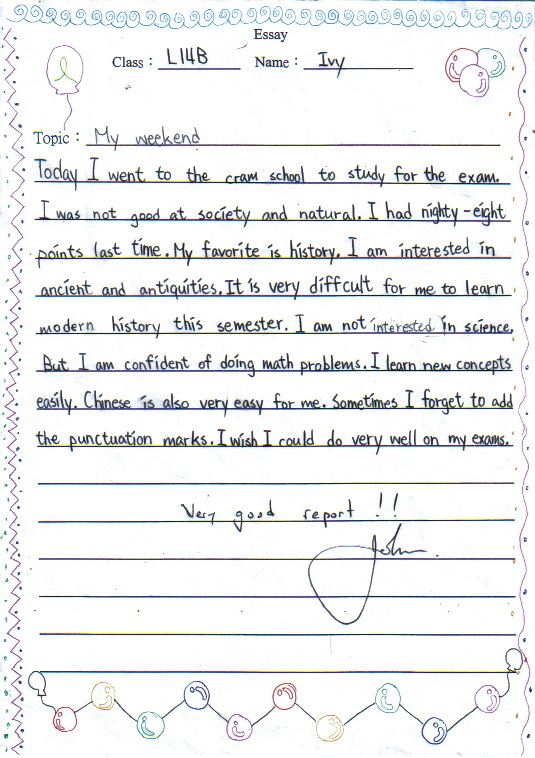 Essay
Class : L14B Name : Ivy
Topic : My weekend
Today I went to the cram school to study for the exam.
I was not good at society and natural. I had nighty-eight
points last time. My favorite is history. I am interested in
ancient and antiquities. It is very diffcult for me to learn
modern history this semester. I am not interested in science.
But I am confident of doing math problems. I learn new concepts
easily. Chinese is also very easy for me. Sometimes I forget to add
the punctuation marks. I wish I could do very well on my exams.
Very good report !!
John